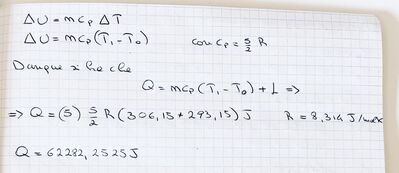 ΔU = mcₚ ΔT
ΔU = mcₚ (T₁ - T₀) con cₚ = 5/2 R
Dunque si ha che
Q = mcₚ (T₁ - T₀) + L =>
=> Q = (5) 5/2 R (306,15 + 293,15) J R = 8,314 J/molK
Q = 62282,2525 J